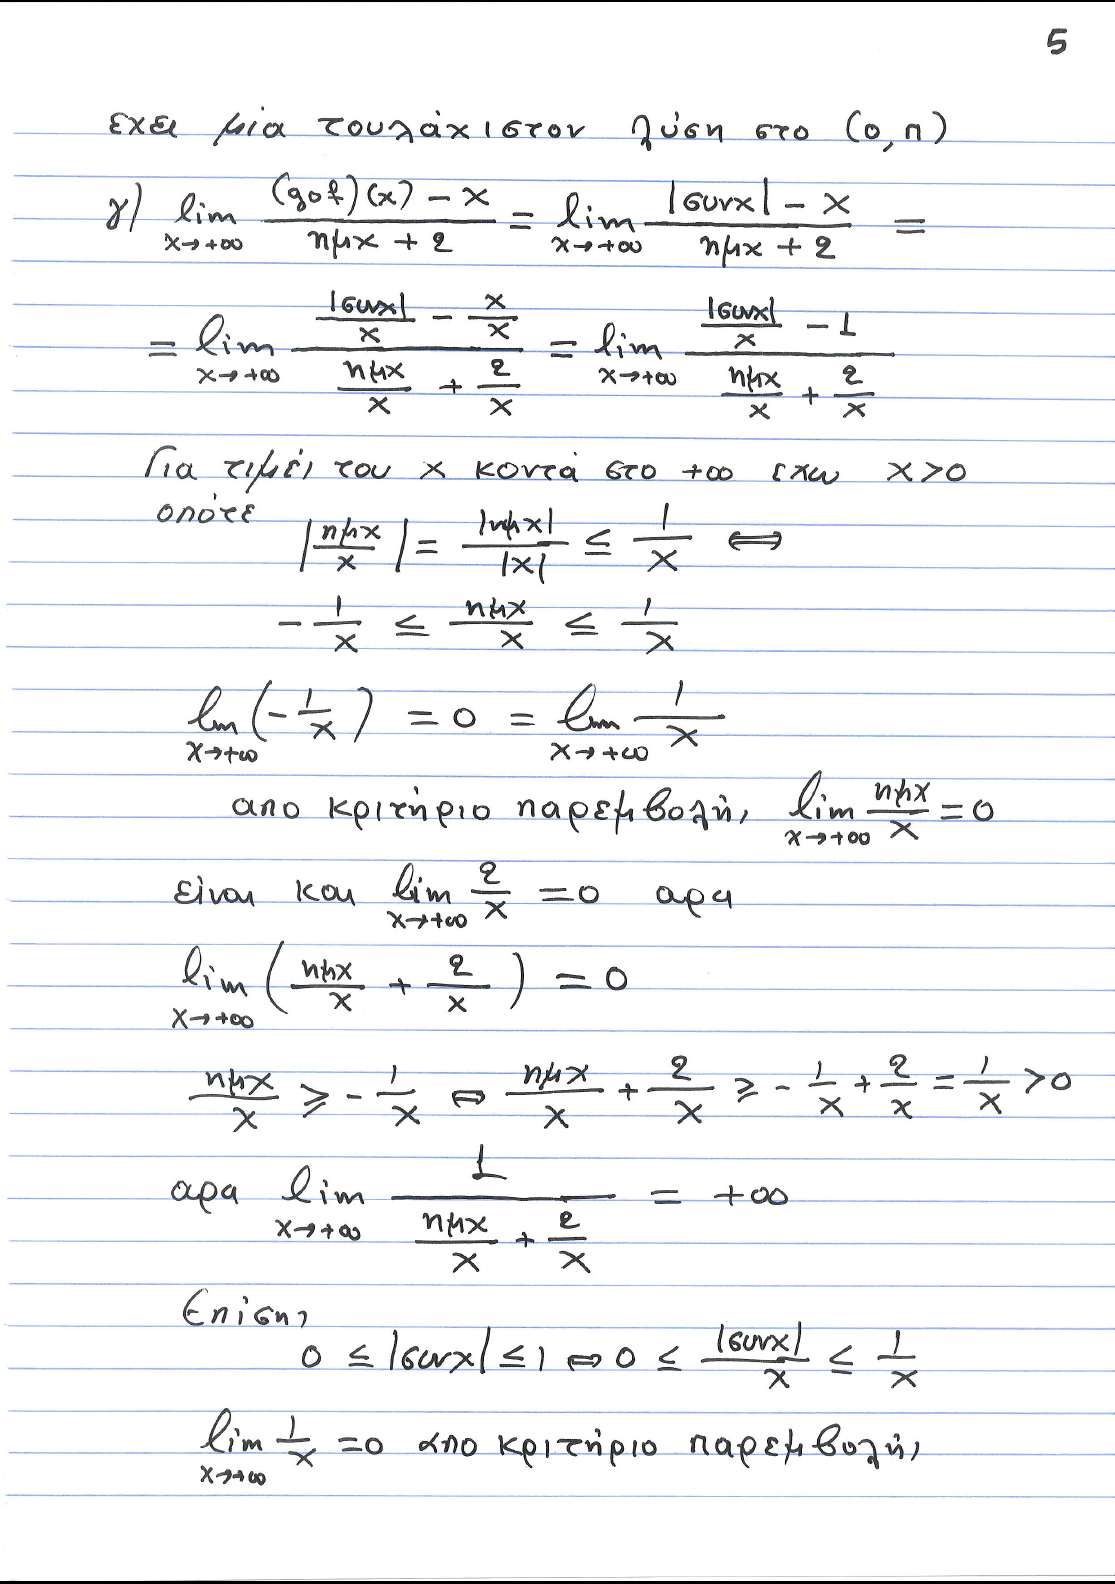 5
εχει μία τουλάχιστον λύση στο (0,π)
γ) lim_{x→+∞} \frac{(gof)(x) - x}{ημx + 2} = lim_{x→+∞} \frac{|συνx| - x}{ημx + 2} =
= lim_{x→+∞} \frac{\frac{|συνx|}{x} - \frac{x}{x}}{\frac{ημx}{x} + \frac{2}{x}} = lim_{x→+∞} \frac{\frac{|συνx|}{x} - 1}{\frac{ημx}{x} + \frac{2}{x}}
Για τιμές του x κοντά στο +∞ εχω x>0
οπότε |\frac{ημx}{x}| = \frac{|ημx|}{|x|} ≤ \frac{1}{x} ⟺
-\frac{1}{x} ≤ \frac{ημx}{x} ≤ \frac{1}{x}
lim_{x→+∞} (-\frac{1}{x}) = 0 = lim_{x→+∞} \frac{1}{x}
απο κριτήριο παρεμβολής lim_{x→+∞} \frac{ημx}{x} = 0
είναι και lim_{x→+∞} \frac{2}{x} = 0 αρα
lim_{x→+∞} (\frac{ημx}{x} + \frac{2}{x}) = 0
\frac{ημx}{x} ≥ -\frac{1}{x} ⟺ \frac{ημx}{x} + \frac{2}{x} ≥ -\frac{1}{x} + \frac{2}{x} = \frac{1}{x} > 0
αρα lim_{x→+∞} \frac{1}{\frac{ημx}{x} + \frac{2}{x}} = +∞
Επίσης
0 ≤ |συνx| ≤ 1 ⟺ 0 ≤ \frac{|συνx|}{x} ≤ \frac{1}{x}
lim_{x→+∞} \frac{1}{x} = 0 απο κριτήριο παρεμβολής